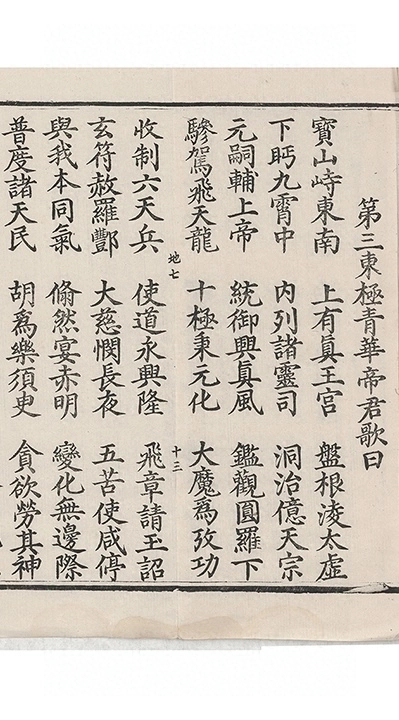 第三東極青華帝君歌曰
寶山峙東南　上有眞王宮　盤根淩太虛
下眄九霄中　內列諸靈司　洞治億天宗
元嗣輔上帝　統御興眞風　鑑觀圓羅下
驂駕飛天龍　十極秉元化　大魔爲攷功
地七　十三
收制六天兵　使道永興隆　飛章請玉詔
玄符赦羅酆　大慈憫長夜　五苦使咸停
與我本同氣　翛然宴赤明　變化無邊際
普度諸天民　胡爲樂須臾　貪欲勞其神